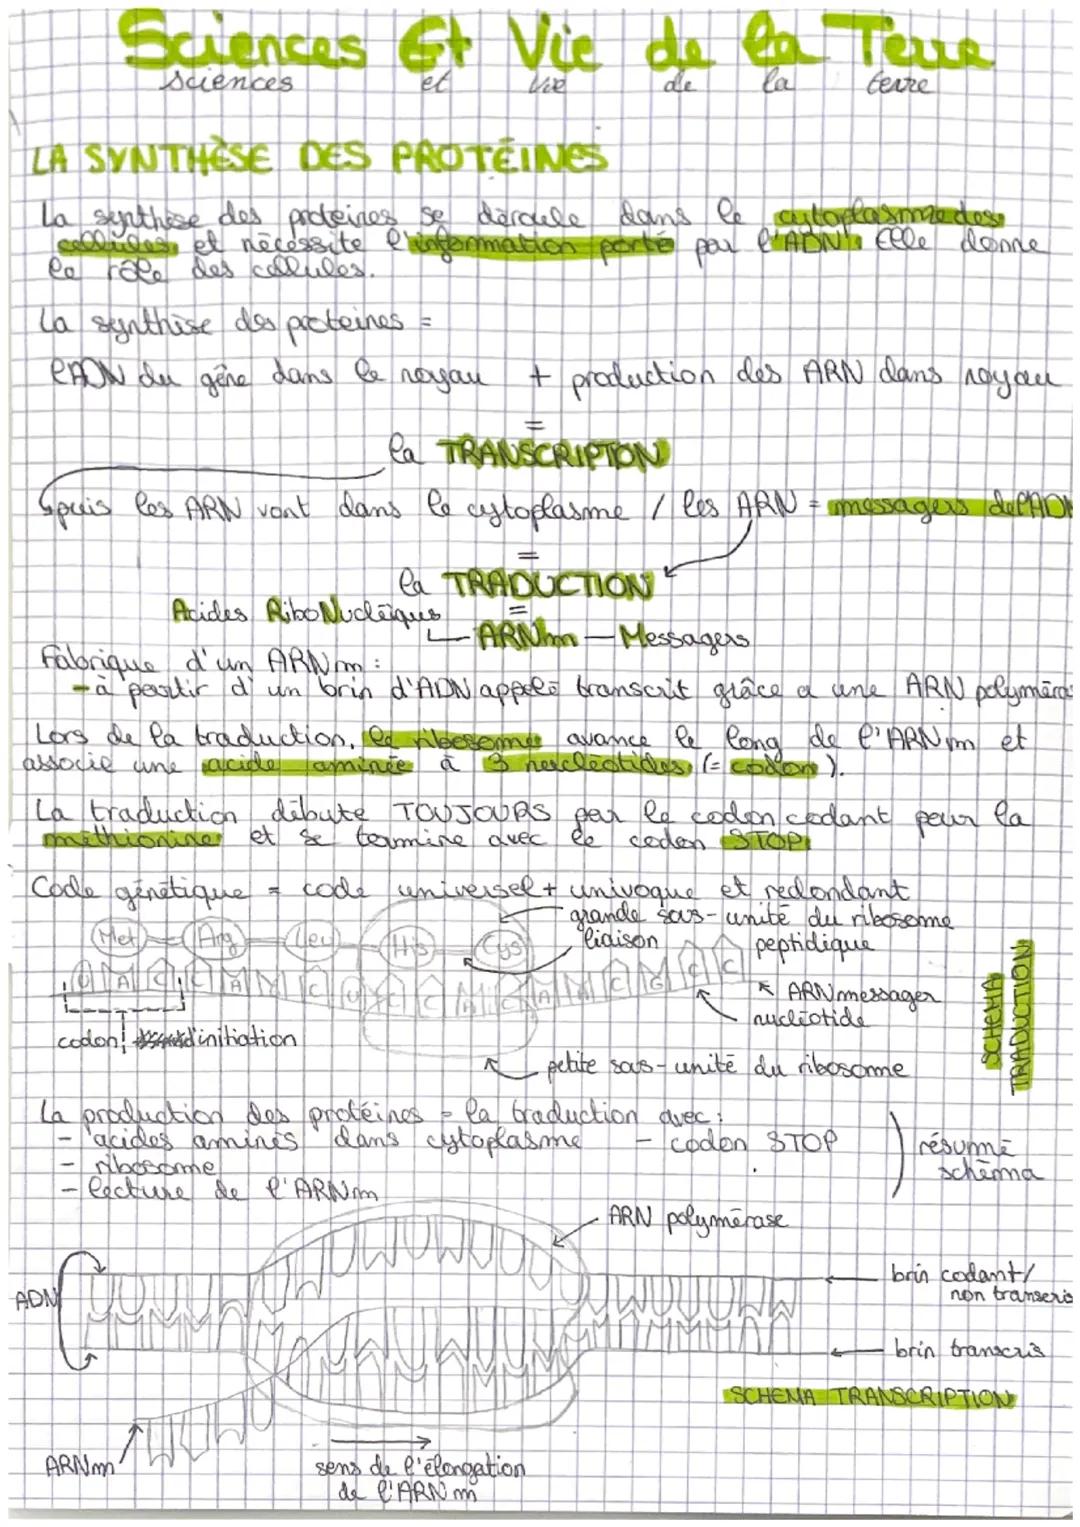 Sciences Et Vie de la Terre
sciences et vie de la terre
LA SYNTHÈSE DES PROTÉINES
La synthèse des protéines se déroule dans le cytoplasme des
cellules et nécessite l'information porté par l'ADN. Elle donne
le rôle des cellules.
La synthèse des protéines =
l'ADN du gène dans le noyau + production des ARN dans noyau
=
la TRANSCRIPTION
puis les ARN vont dans le cytoplasme / les ARN = messagers de l'ADN
=
la TRADUCTION
Acides RiboNucléiques =
ARNm - Messagers
Fabrique d'un ARNm :
- à partir d'un brin d'ADN appelé transcrit grâce a une ARN polyméra
Lors de la traduction, le ribosome avance le long de l'ARNm et
associe une acide aminée à 3 nucléotides (= codon).
La traduction débute TOUJOURS par le codon codant pour la
méthionine et se termine avec le codon STOP.
Code génétique = code universel + univoque et redondant
grande sous-unité du ribosome
Met Arg Leu His Cys liaison peptidique
ARN messager
nucléotide
codon d'initiation
petite sous-unité du ribosome
SCHEMA
TRADUCTION
La production des protéines = la traduction avec :
- acides aminés dans cytoplasme - codon STOP
- ribosome
- lecture de l'ARNm
résumé
schéma
ARN polymérase
ADN
brin codant/
non transcris
brin transcris
SCHEMA TRANSCRIPTION
ARNm
sens de l'élongation
de l'ARNm